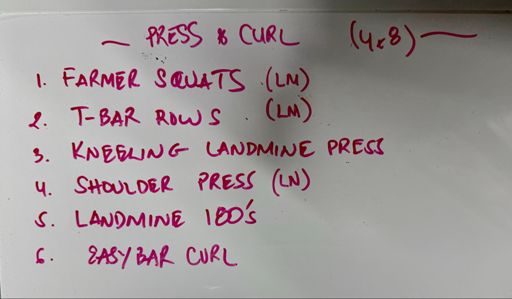 — PRESS & CURL (4x8) —
1. FARMER SQUATS (LM)
2. T-BAR ROWS (LM)
3. KNEELING LANDMINE PRESS
4. SHOULDER PRESS (LN)
5. LANDMINE 180's
6. EASYBAR CURL